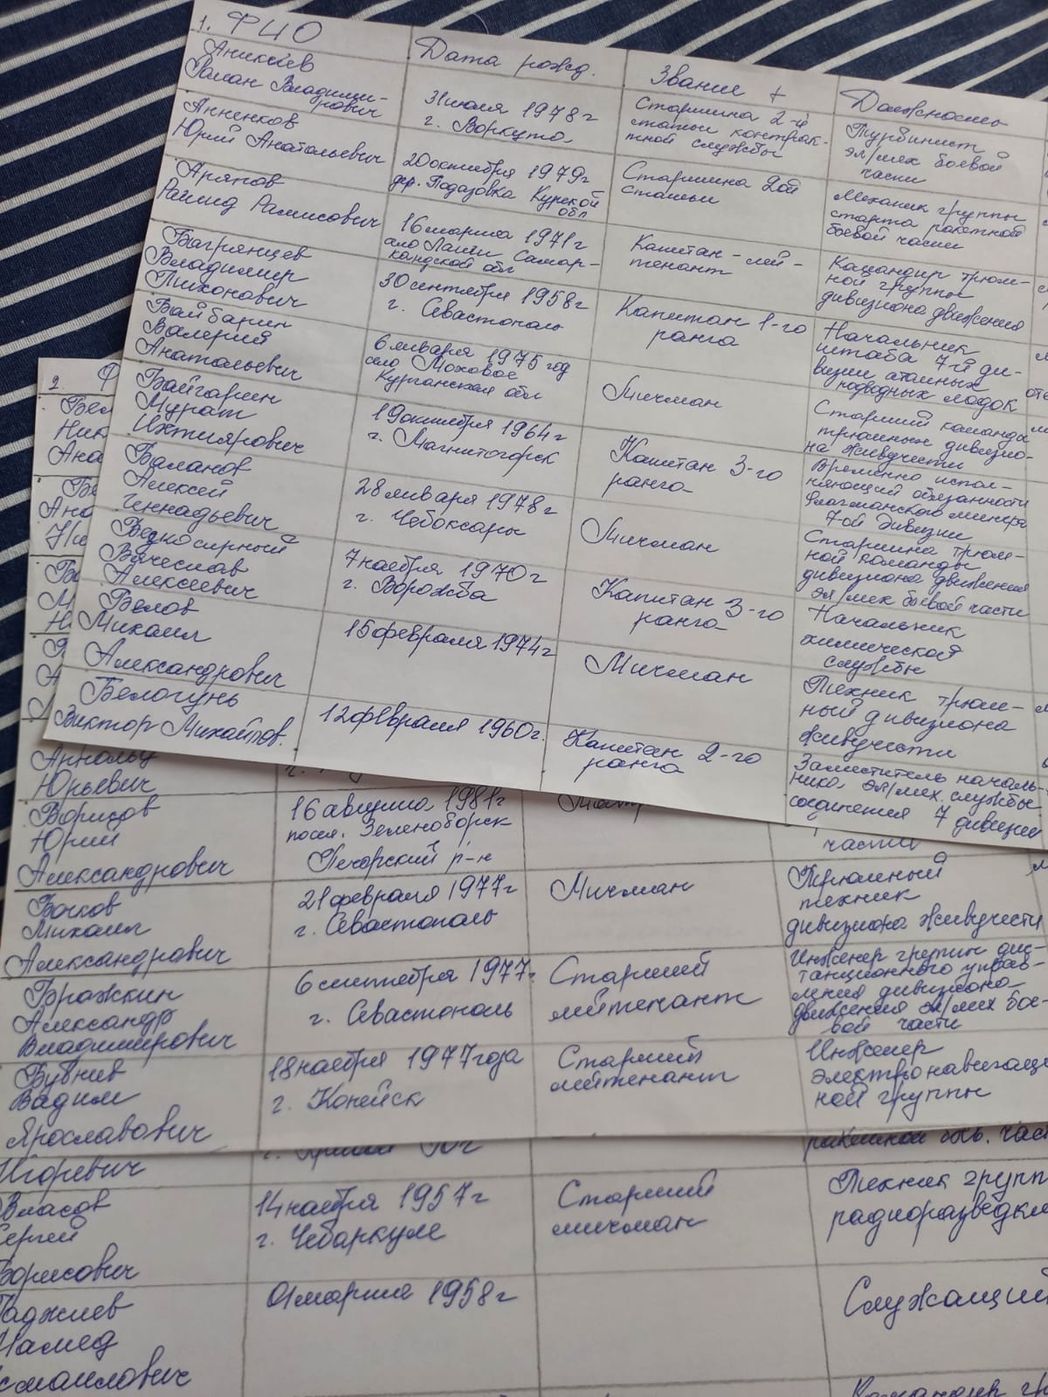 1. ФИО
Дата рожд.
Звание +
Должность
Аникиев
Роман Владими-
рович
31 июля 1978 г
г. Воркута
Старшина 2-й
статьи контрак-
тной службы
Турбинист
эл/мех боевой
части
Анненков
Юрий Анатольевич
20 октября 1979г
дер. Подазовка Курской
обл
Старшина 2ой
статьи
Механик группы
старта ракетной
боевой части
Аряпов
Рашид Рамисович
16 марта 1971г
село Лаиш Самар-
кандской обл
Капитан-лей-
тенант
Командир трюм-
ной группы
дивизиона движения
Багрянцев
Владимир
Тихонович
30 сентября 1958г
г. Севастополь
Капитан 1-го
ранга
Начальник
штаба 7-й ди-
визии атомных
подводных лодок
Байбарин
Валерий
Анатольевич
6 января 1975 год
село Моховое
Курганская обл
Мичман
Старший команды
трюмных дивизио-
на живучести
Байгарин
Мурат
Ихтиярович
19 октября 1964г
г. Магнитогорск
Капитан 3-го
ранга
Временно испол-
няющий обязанности
флагманского минера
7-ой дивизии
Баланов
Алексей
Геннадьевич
28 января 1978г
г. Чебоксары
Мичман
Старшина трюм-
ной команды
дивизиона движения
эл/мех боевой части
Безносирный
Вячеслав
Алексеевич
7 ноября 1970г
г. Ворожба
Капитан 3-го
ранга
Начальник
химической
службы
Белов
Михаил
Александрович
15 февраля 1974г
Мичман
Техник трюм-
ный дивизиона
живучести
Белогунь
Виктор Михайлов.
12 февраля 1960г.
Капитан 2-го
ранга
Заместитель началь-
ника эл/мех. службы
соединения 7 дивизии
2
Ф
Бел
Ник
Ана
Арнольд
Юрьевич
части
Борисов
Юрий
Александрович
16 августа 1981г
посел. Зеленоборск
Печорский р-н
Бочков
Михаил
Александрович
21 февраля 1977г
г. Севастополь
Мичман
Трюмный
техник
дивизиона живучести
Бражкин
Александр
Владимирович
6 сентября 1977г
г. Севастополь
Старший
лейтенант
Инженер группы дис-
танционного управ-
ления дивизиона
движения эл/мех бое-
вой части
Бубнив
Вадим
Ярославович
18 ноября 1977 года
г. Копейск
Старший
лейтенант
Инженер
электронавигаци
ной группы
Игоревич
ракетной боев. част
Власов
Сергей
Борисович
14 ноября 1957г
г. Чебаркуле
Старший
мичман
Техник групп
радиоразведки
Гаджиев
Мамед
смаилович
01 марта 1958г
Служащий